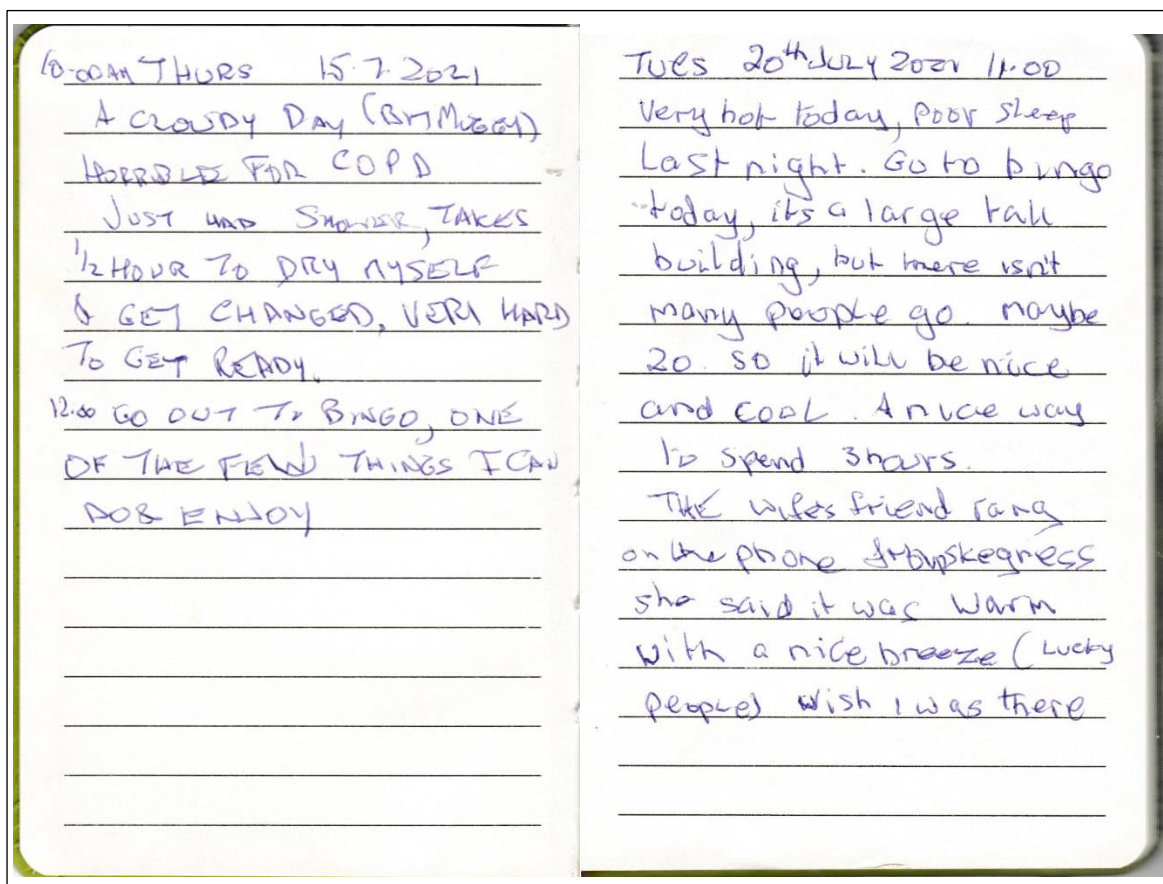 10-00AM THURS 15.7.2021
A CLOUDY DAY (BUT MUGGY)
HORRIBLE FOR COPD
JUST HAD SHOWER, TAKES
1/2 HOUR TO DRY MYSELF
& GET CHANGED, VERY HARD
TO GET READY.
12.00 GO OUT TO BINGO, ONE
OF THE FEW THINGS I CAN
DO & ENJOY
Tues 20th JULY 2021 11.00
Very hot today, Poor Sleep
Last night. Go to bingo
today, its a large tall
building, but there isn't
many people go. maybe
20. so it will be nice
and cool. A nice way
to spend 3 hours.
THE wifes friend rang
on the phone from skegness
she said it was warm
with a nice breeze (Lucky
people) wish I was there